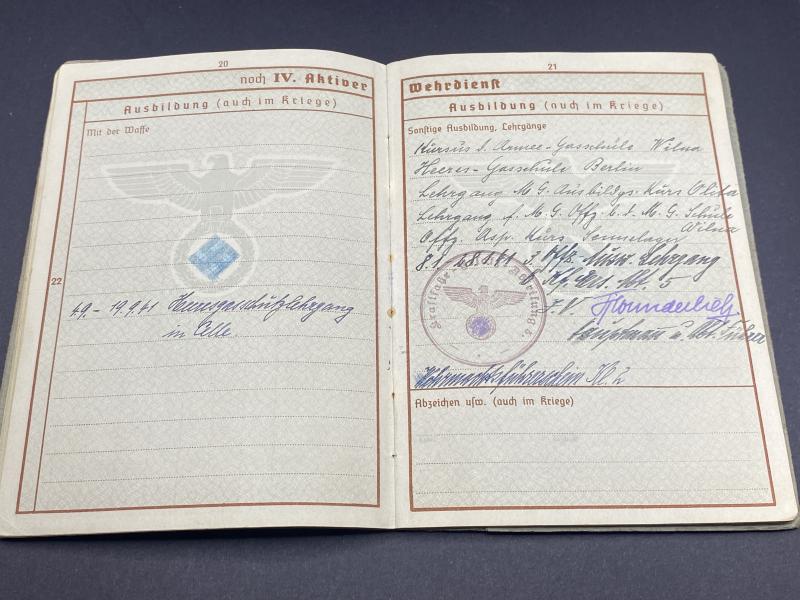 20
noch IV. Aktiver
Ausbildung (auch im Kriege)
Mit der Waffe
22
4.9. – 19.9.41 Heeresgasschutzlehrgang
in Celle.
21
Wehrdienst
Ausbildung (auch im Kriege)
Sonstige Ausbildung, Lehrgänge
Kursus d. Armee-Gasschule Wilna
Heeres-Gasschule Berlin
Lehrgang M.G. Ausbildgs. Kurs Olita
Lehrgang f. M.G. Offz. b. d. M.G. Schule
Wilna
Offz. Asp. Kurs Sennelager
8.1. 18.1.41 Offz. Lehrgang
Kf. Ers. Abt. 5
Kraftfahr-
Abteilung 5
Hauptmann u. Abt. Führer
Wehrmachtsführerschein Kl. 2
Abzeichen usw. (auch im Kriege)